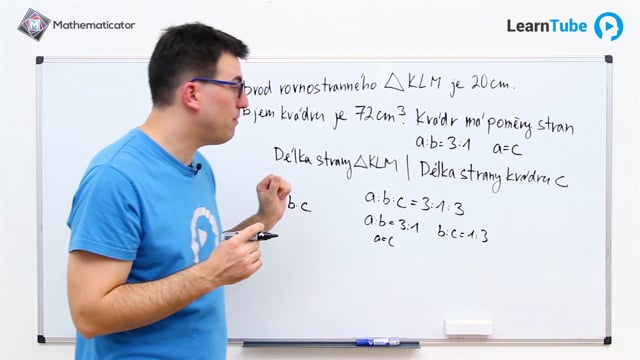 Mathematicator
LearnTube
bvod rovnostranného △KLM je 20cm.
bjem kvádru je 72cm³. Kvádr má poměry stran
a:b=3:1 a=c
Délka strany △KLM | Délka strany kvádru c
b:c
a:b:c=3:1:3
a:b=3:1 b:c=1:3
a=c